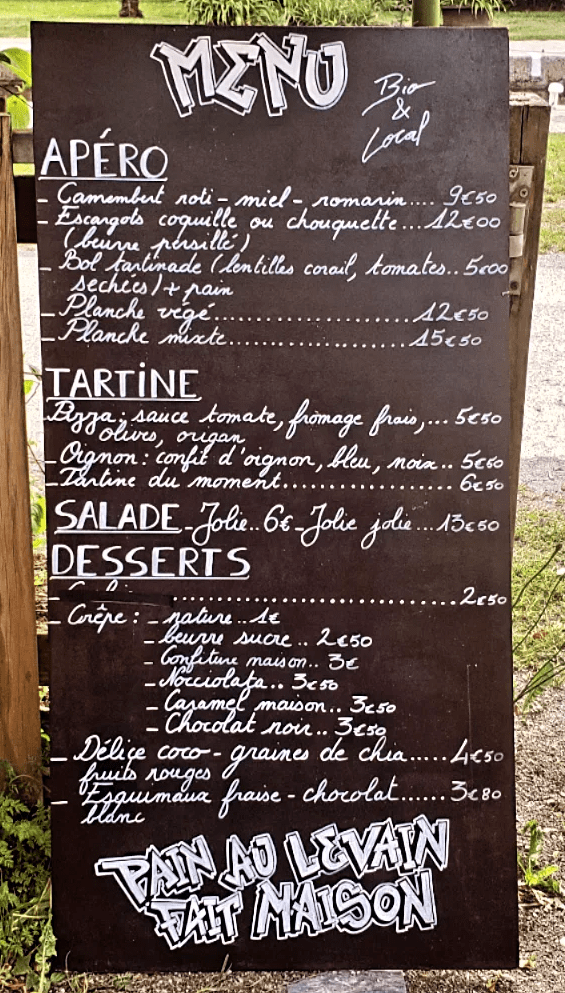 MENU
Bio
&
Local
APÉRO
- Camembert roti - miel - romarin.... 9€50
- Escargots coquille ou chouquette...12€00
(beurre persillé)
- Bol tartinade (lentilles corail, tomates.. 5€00
sechées) + pain
- Planche végé......................12€50
- Planche mixte....................15€50
TARTiNE
- Pizza : sauce tomate, fromage frais,... 5€50
olives, origan
- Oignon : confit d'oignon, bleu, noix.. 5€50
- Tartine du moment.................. 6€50
SALADE - Jolie.. 6€ - Jolie jolie...13€50
DESSERTS
- ..............................2€50
- Crêpe : - nature..1€
- beurre sucre .. 2€50
- Confiture maison.. 3€
- Nocciolata.. 3€50
- Caramel maison.. 3€50
- Chocolat noir.. 3€50
- Délice coco - graines de chia.....4€50
fruits rouges
- Esquimaux fraise - chocolat......3€80
blanc
PAIN AU LEVAIN
FAIT MAISON